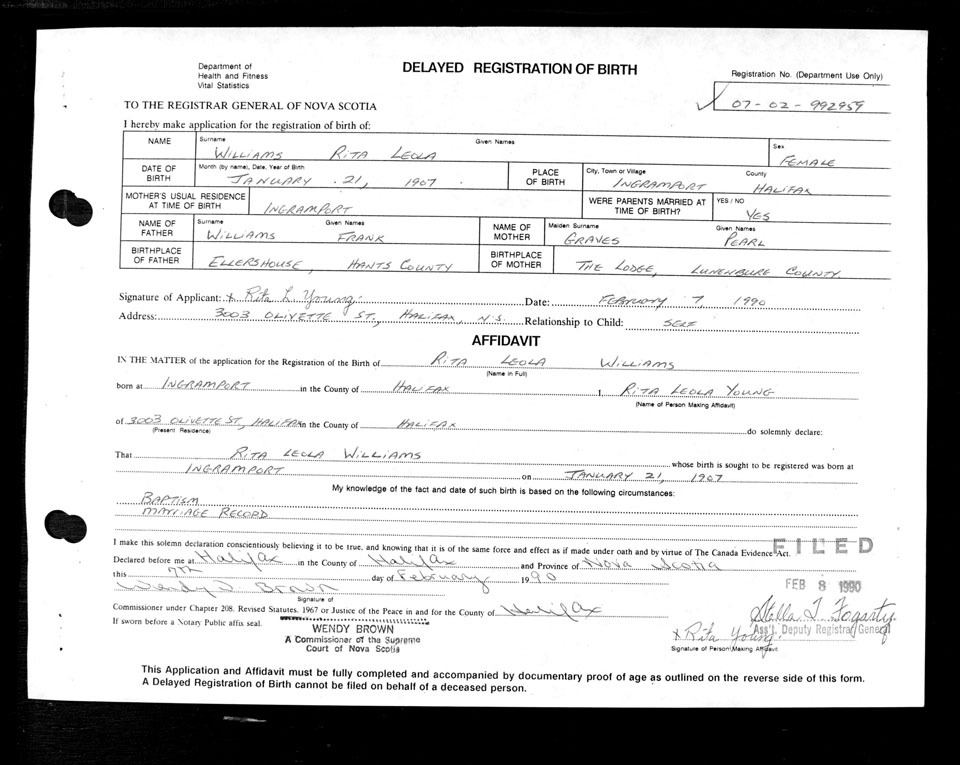 Department of
Health and Fitness
Vital Statistics
DELAYED REGISTRATION OF BIRTH
Registration No. (Department Use Only)
07-02-992959
TO THE REGISTRAR GENERAL OF NOVA SCOTIA
I hereby make application for the registration of birth of:
NAME Surname Given Names Sex
WILLIAMS RITA LEOLA FEMALE
DATE OF BIRTH Month (by name), Date, Year of Birth PLACE OF BIRTH City, Town or Village County
JANUARY 21, 1907 INGRAMPORT HALIFAX
MOTHER'S USUAL RESIDENCE AT TIME OF BIRTH INGRAMPORT WERE PARENTS MARRIED AT TIME OF BIRTH? YES / NO YES
NAME OF FATHER Surname Given Names NAME OF MOTHER Maiden Surname Given Names
WILLIAMS FRANK GRAVES PEARL
BIRTHPLACE OF FATHER ELLERSHOUSE, HANTS COUNTY BIRTHPLACE OF MOTHER THE LODGE, LUNENBURG COUNTY
Signature of Applicant: x Rita L. Young Date: FEBRUARY 7, 1990
Address: 3003 OLIVETTE ST., HALIFAX, N.S. Relationship to Child: SELF
AFFIDAVIT
IN THE MATTER of the application for the Registration of the Birth of RITA LEOLA WILLIAMS
(Name in Full)
born at INGRAMPORT in the County of HALIFAX I, RITA LEOLA YOUNG
(Name of Person Making Affidavit)
of 3003 OLIVETTE ST, HALIFAX in the County of HALIFAX do solemnly declare:
(Present Residence)
That RITA LEOLA WILLIAMS whose birth is sought to be registered was born at
INGRAMPORT on JANUARY 21, 1907
My knowledge of the fact and date of such birth is based on the following circumstances:
BAPTISM
MARRIAGE RECORD
I make this solemn declaration conscientiously believing it to be true, and knowing that it is of the same force and effect as if made under oath and by virtue of The Canada Evidence Act.
FILED
Declared before me at Halifax in the County of Halifax and Province of Nova Scotia
this 7th day of February 1990
FEB 8 1990
Wendy D Brown
Signature of
Commissioner under Chapter 208, Revised Statutes, 1967 or Justice of the Peace in and for the County of Halifax
Stella T. Fogarty
If sworn before a Notary Public affix seal.
WENDY BROWN
A Commissioner of the Supreme
Court of Nova Scotia
Ass't. Deputy Registrar General
x Rita Young
Signature of Person Making Affidavit
This Application and Affidavit must be fully completed and accompanied by documentary proof of age as outlined on the reverse side of this form.
A Delayed Registration of Birth cannot be filed on behalf of a deceased person.